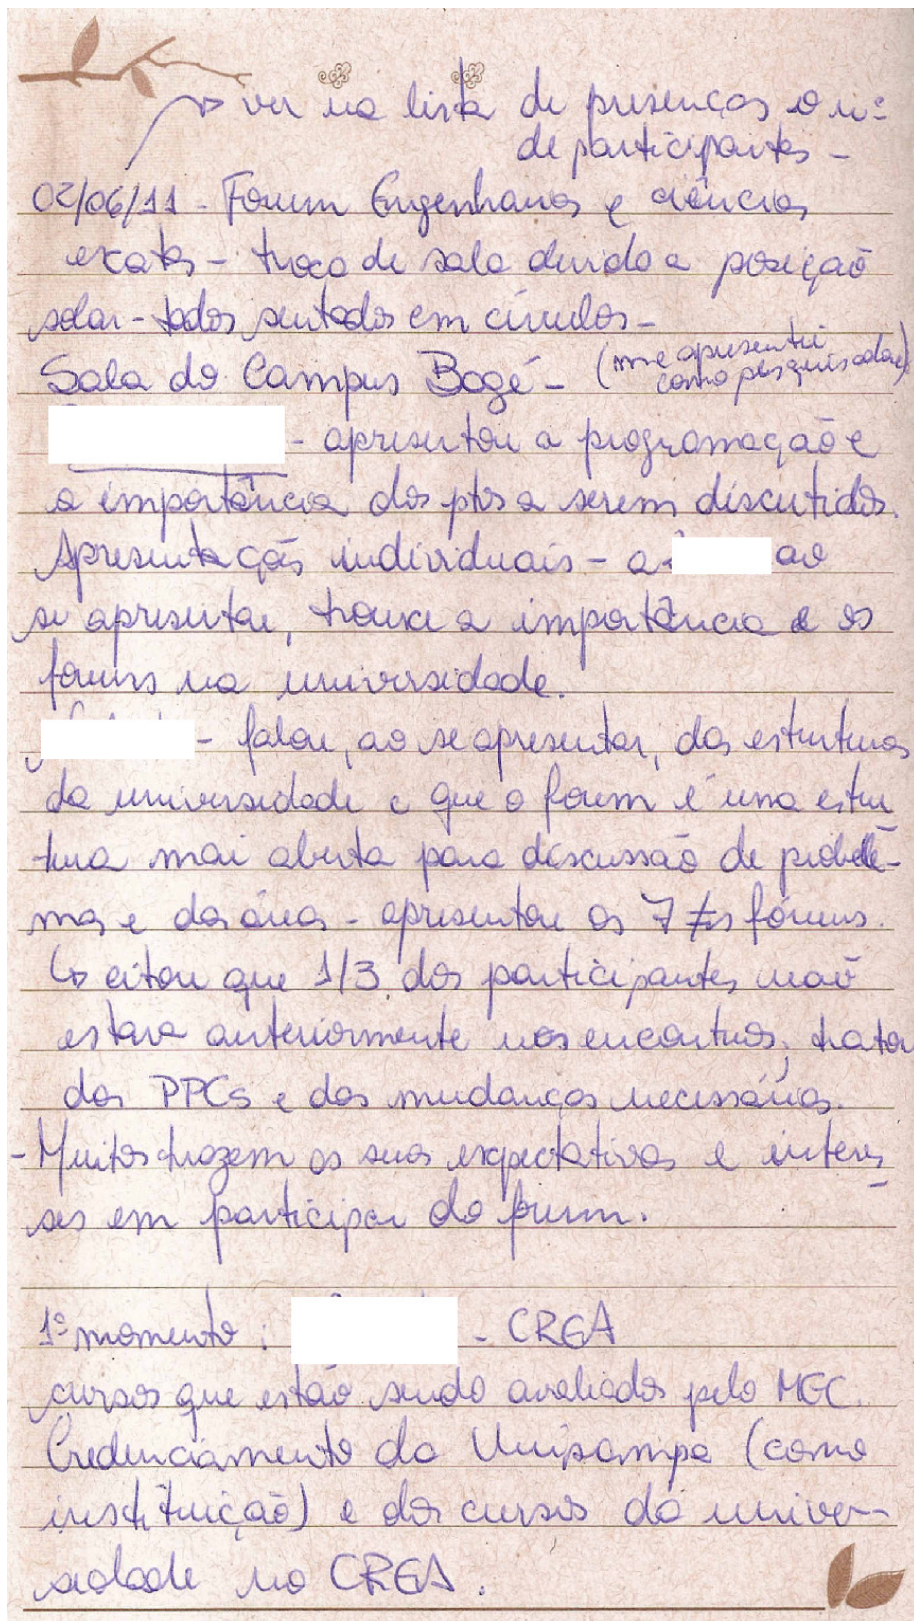 → ver na lista de presenças o nº
de participantes -
02/06/11 - Fórum Engenharias e ciências
exatas - troca de sala devido a posição
solar - todos sentados em círculos -
Sala do Campus Bagé - (me apresentei
como pesquisadora)
- apresentou a programação e
a importância dos ptos a serem discutidos.
Apresentações individuais - a ao
se apresentar, trouxe a importância e os
fóruns na universidade.
- falou, ao se apresentar, das estruturas
da universidade e que o fórum é uma estru
tura mai aberta para discussão de proble-
mas e da área - apresentou os 7 ≠s fóruns.
↳ citou que 1/3 dos participantes não
estava anteriormente nos encontros; tratou
dos PPCs e das mudanças necessárias.
- Muitos trazem as suas expectativas e interes
ses em participar do fórum.
1º momento: - CREA
cursos que estão sendo avaliados pelo MEC.
Credenciamento da Unipampa (como
instituição) e dos cursos da univer-
sidade no CREA.